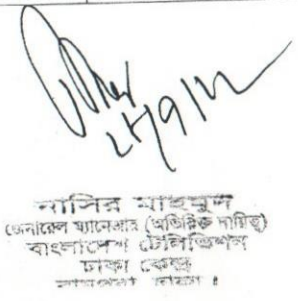 ২৮/৭/২২
নাসির মাহমুদ
জেনারেল ম্যানেজার (অতিরিক্ত দায়িত্ব)
বাংলাদেশ টেলিভিশন
ঢাকা কেন্দ্র
রামপুরা, ঢাকা ।